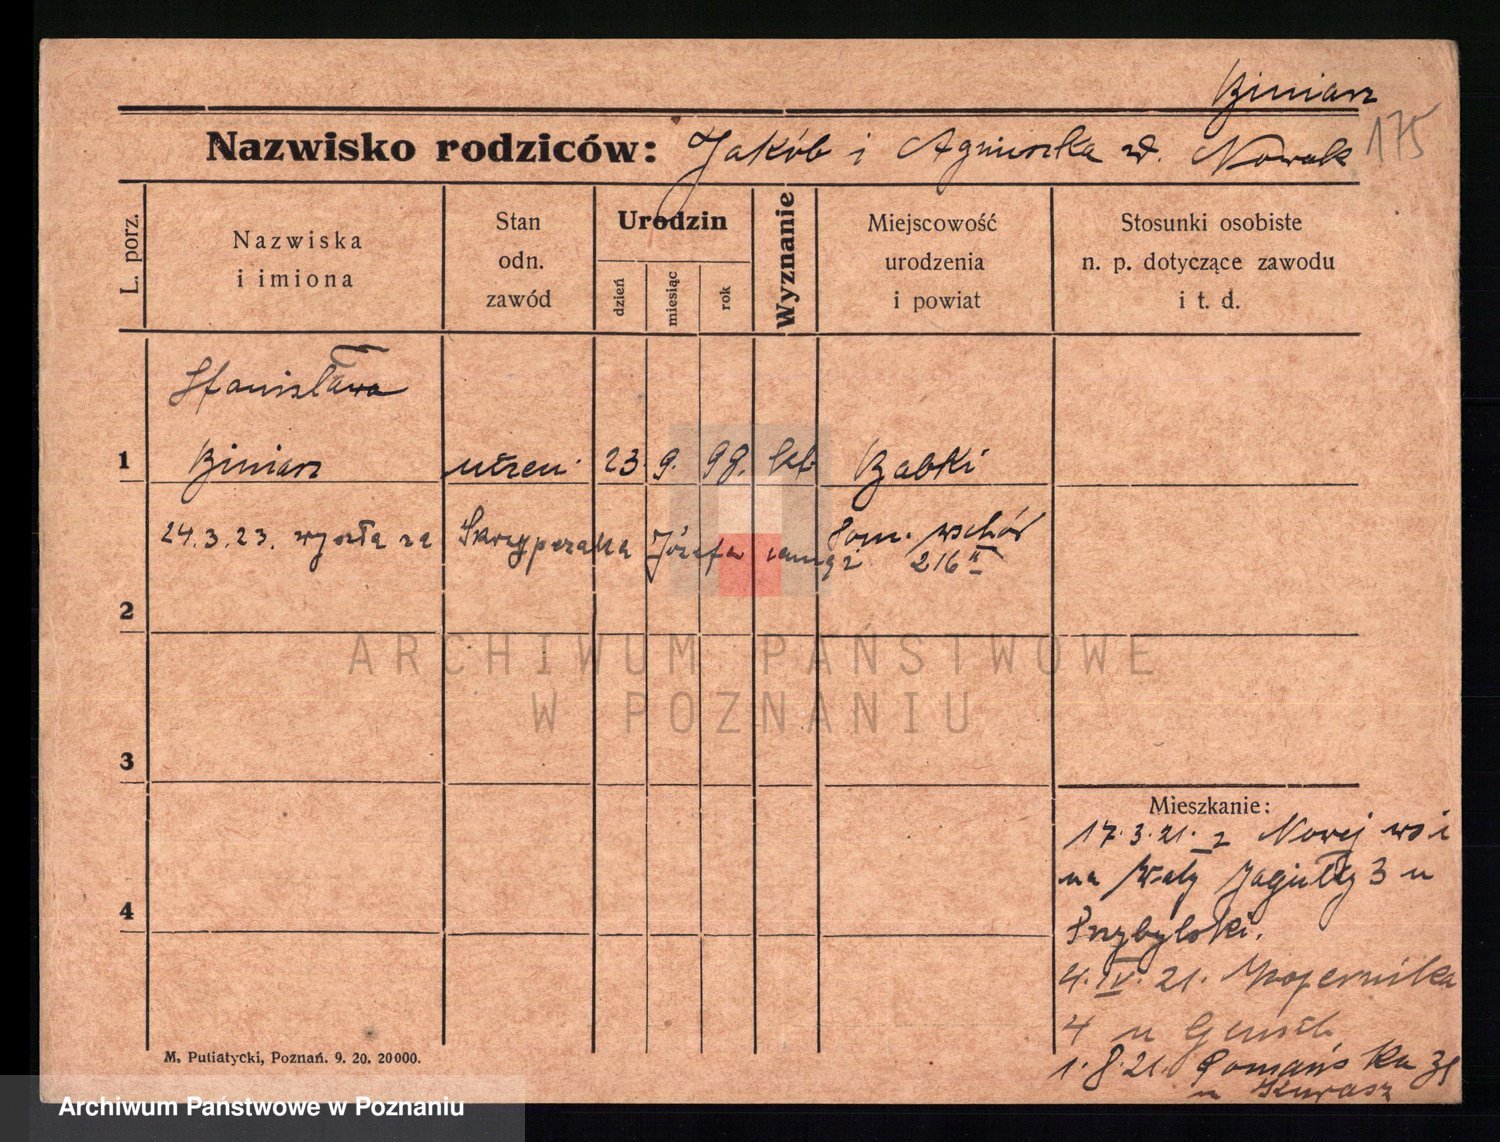 Biniarz
Nazwisko rodziców: Jakób i Agnieszka zd. Nowak 175
L. porz.
Nazwiska
i imiona
Stan
odn.
zawód
Urodzin
dzień
miesiąc
rok
Wyznanie
Miejscowość
urodzenia
i powiat
Stosunki osobiste
n. p. dotyczące zawodu
i t. d.
Stanisława
1 Biniarz 23. 9. 98. kt. Babki
24.3.23. wyszła za Skrzypczaka Józefa
pow. wschód
216
2
3
4
Mieszkanie:
17.3.21. z Nowej wsi
na Wały Jagiełły 3 u
Przybylski.
4.IV.21. Kopernika
4 u
1.8.21. u
M. Putiatycki, Poznań. 9. 20. 20000.
ARCHIWUM PAŃSTWOWE
W POZNANIU
Archiwum Państwowe w Poznaniu